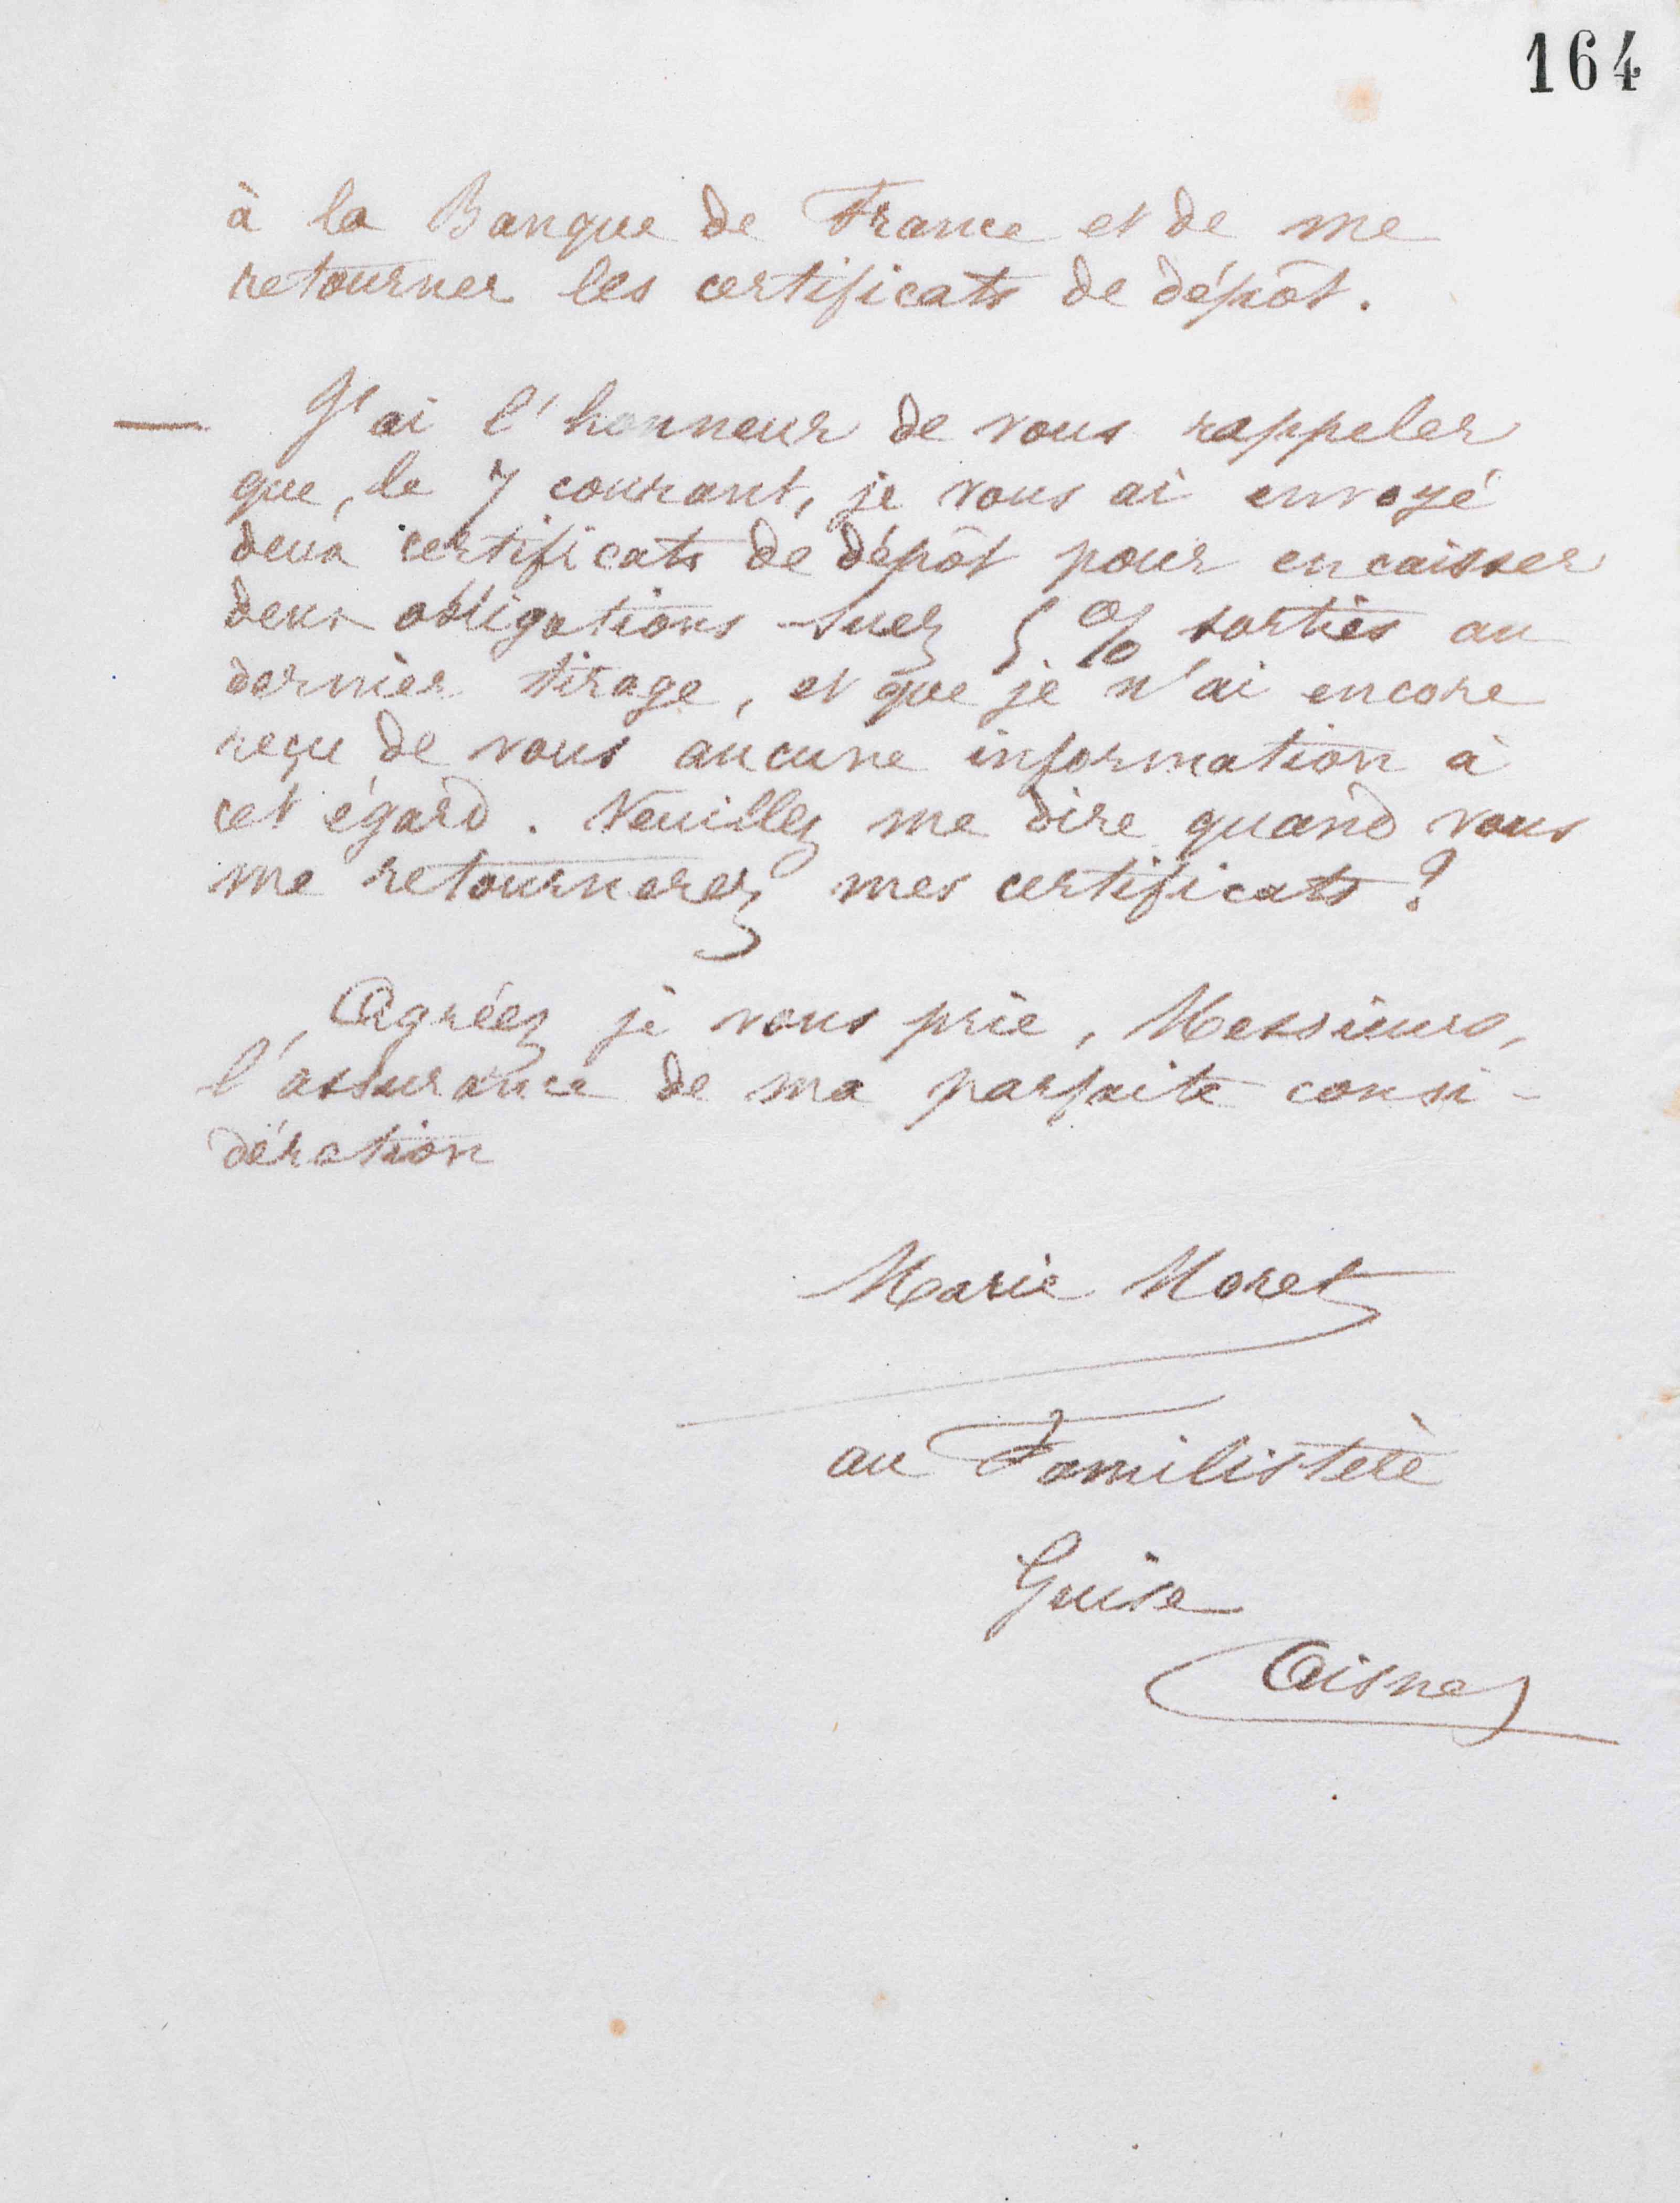 164
à la Banque de France et de me
retourner les certificats de dépôt.
— J'ai l'honneur de vous rappeler
que, le 7 courant, je vous ai envoyé
deux certificats de dépôt pour encaisser
deux obligations Suez 5 % sorties au
dernier tirage, et que je n'ai encore
reçu de vous aucune information à
cet égard. Veuillez me dire quand vous
me retournerez mes certificats ?
Agréez je vous prie, Messieurs,
l'assurance de ma parfaite consi-
dération
Marie Moret
au Familistère
Guise
Aisne